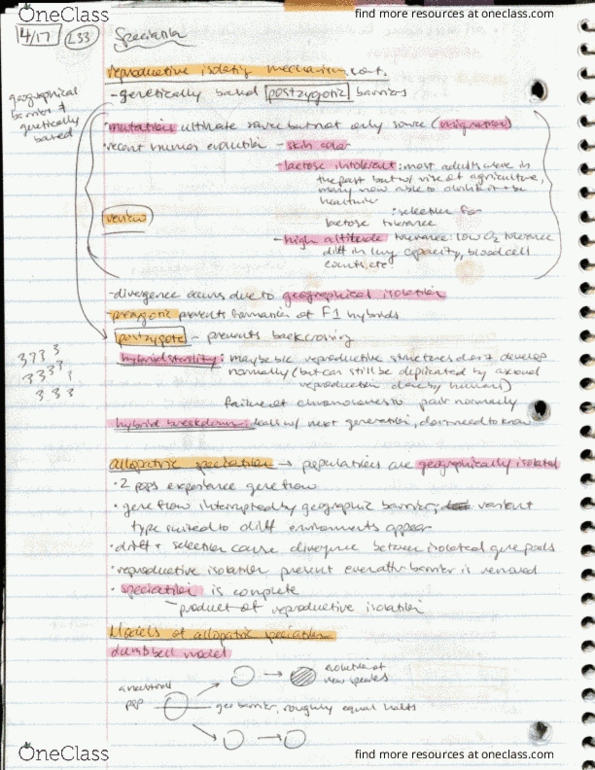 OneClass
find more resources at oneclass.com
4/17
L33
Speciation
reproductive isolating mechanism cont.
- genetically based postzygotic barriers
geographical
barrier +
genetically
based
• mutations ultimate source but not only source (migration)
• recent human evolution - skin color
- lactose intolerant: most adults were in
the past but w/ rise of agriculture,
many now able to drink it + be
healthier
: selection for
lactose tolerance
review
- high altitude tolerance: low O2 tolerance
diff in lung capacity, blood cell
counts, etc.
- divergence occurs due to geographical isolation
- prezygotic prevents formation of F1 hybrids
postzygotic - prevents backcrossing
hybrid sterility: maybe b/c reproductive structures don't develop
normally (but can still be duplicated by asexual
reproduction done by humans)
failure of chromosomes to pair normally
3733
3333
333
hybrid breakdown: w/ next generation, don't need to know
allopatric speciation → populations are geographically isolated
• 2 pops experience gene flow
• gene flow interrupted by geographic barrier, variant
type suited to diff environments appear
• drift + selection cause divergence between isolated gene pools
• reproductive isolation present even after barrier is removed
• speciation is complete
- product of reproductive isolation
Models of allopatric speciation
dumbbell model
evolution of
new species
ancestral
pop
geo barrier, roughly equal halves
OneClass
find more resources at oneclass.com